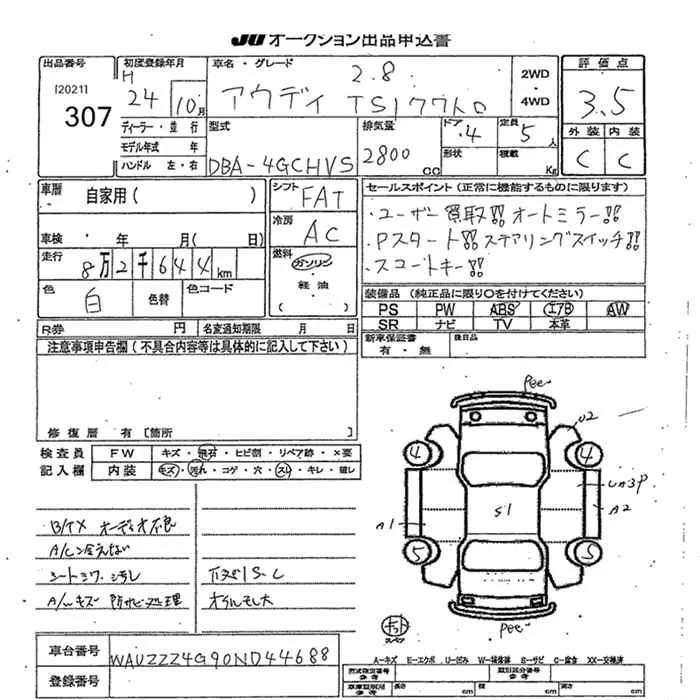 JU オークション出品申込書
出品番号 初度登録年月 車名・グレード 2.8 2WD 評価点
[2021] H 24 10月 アウディ ・ 3.5
307 4WD
ディーラー・並行 型式 排気量 ドア 4 定員 5人 外装 内装
モデル年式 年 DBA-4GCHVS 2800cc 形状 積載 Kg C C
ハンドル 左・右
車歴 自家用( ) シフト FAT セールスポイント(正常に機能するものに限ります)
冷房 AC ・ユーザー買取!! オートミラー!!
車検 ・ 年 月( 日) ・Pスタート!! ステアリングスイッチ!!
走行 8万2千644km 燃料 ガソリン・軽油( ) ・スコートキー!!
色 白 色替 色コード 装備品(純正品に限り〇を付けてください)
PS PW ABS エアB AW
R券 円 名変通知期限 月 日 SR ナビ TV 本革
注意事項申告欄(不具合内容等は具体的に記入して下さい) 新車保証書 有・無 後日品
修復歴 有[箇所 ]
検査員 FW キズ・飛石・ヒビ割・リペア跡・×要
記入欄 内装 キズ・汚れ・コゲ・穴・スレ・キレ・破レ
Pee
U2
4 4
A1 S1 A2
5 5
Pee
スペア
B/TX オーディオ不良
A/C冷えない
シートシワ、汚れ 下廻りS.C
A/Wキズ 防サビ処理
車台番号 WAUZZZ4G90ND44688
登録番号
A-キズ E-エクボ U-凹み W-補修跡 S-サビ C-腐食 XX-交換済
長さ cm 幅 cm 高さ cm